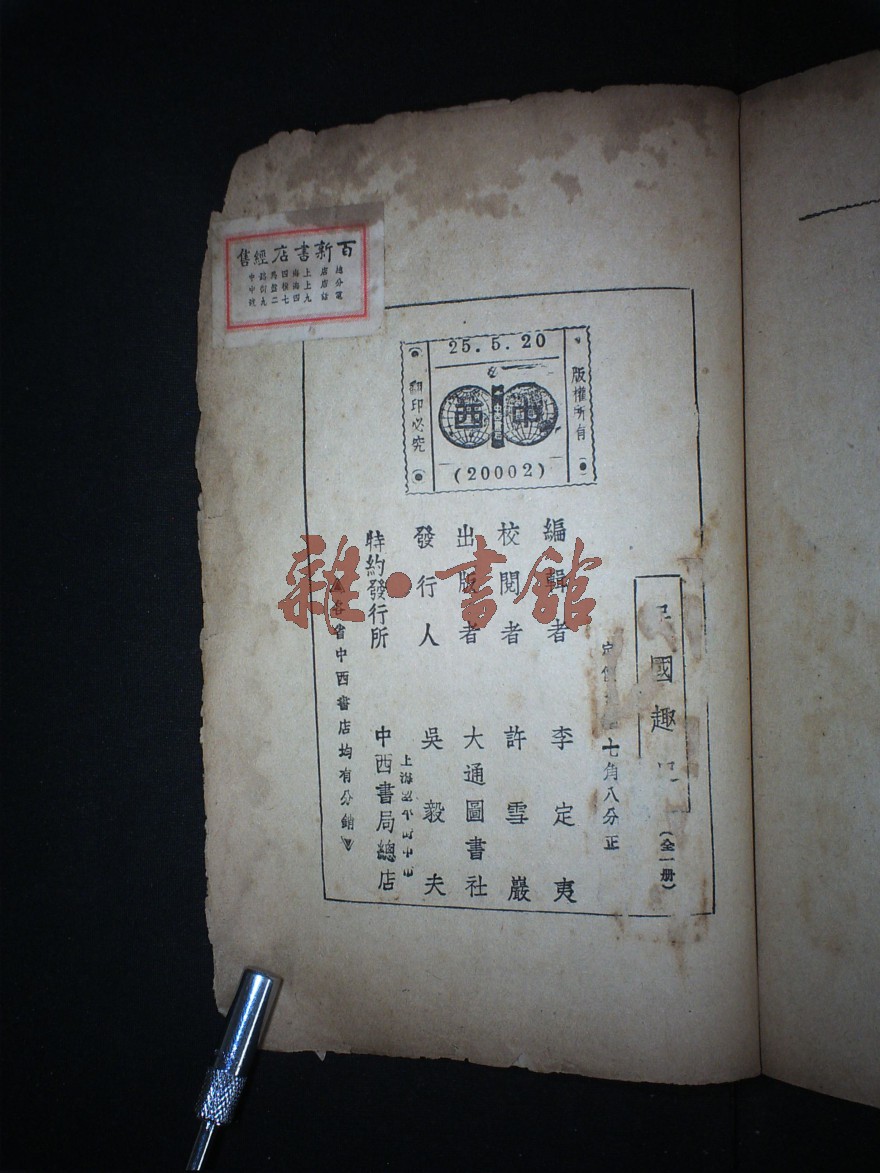 百新書店經售
25.5.20
版權所有
翻印必究
中
西
(20002)
國趣
(全一册)
七角八分正
編輯者 李定夷
校閱者 許雪巖
出版者 大通圖書社
發行人 吳毅夫
特約發行所 中西書局總店
上海
各省中西書店均有分銷
雜·書館